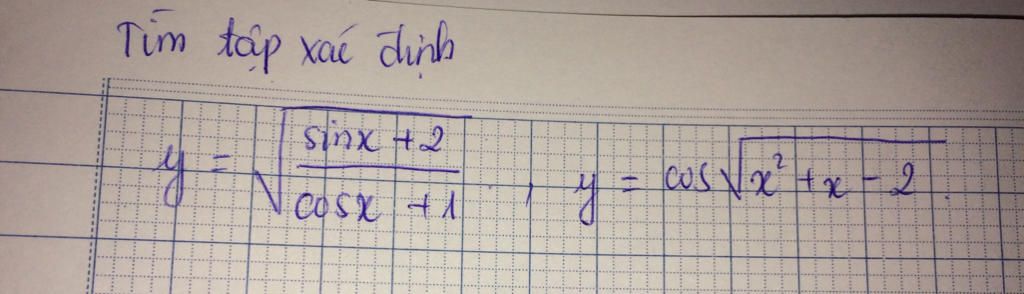 Tìm tập xác định
y = √((sinx + 2)/(cosx + 1)) , y = cos√(x² + x - 2) .